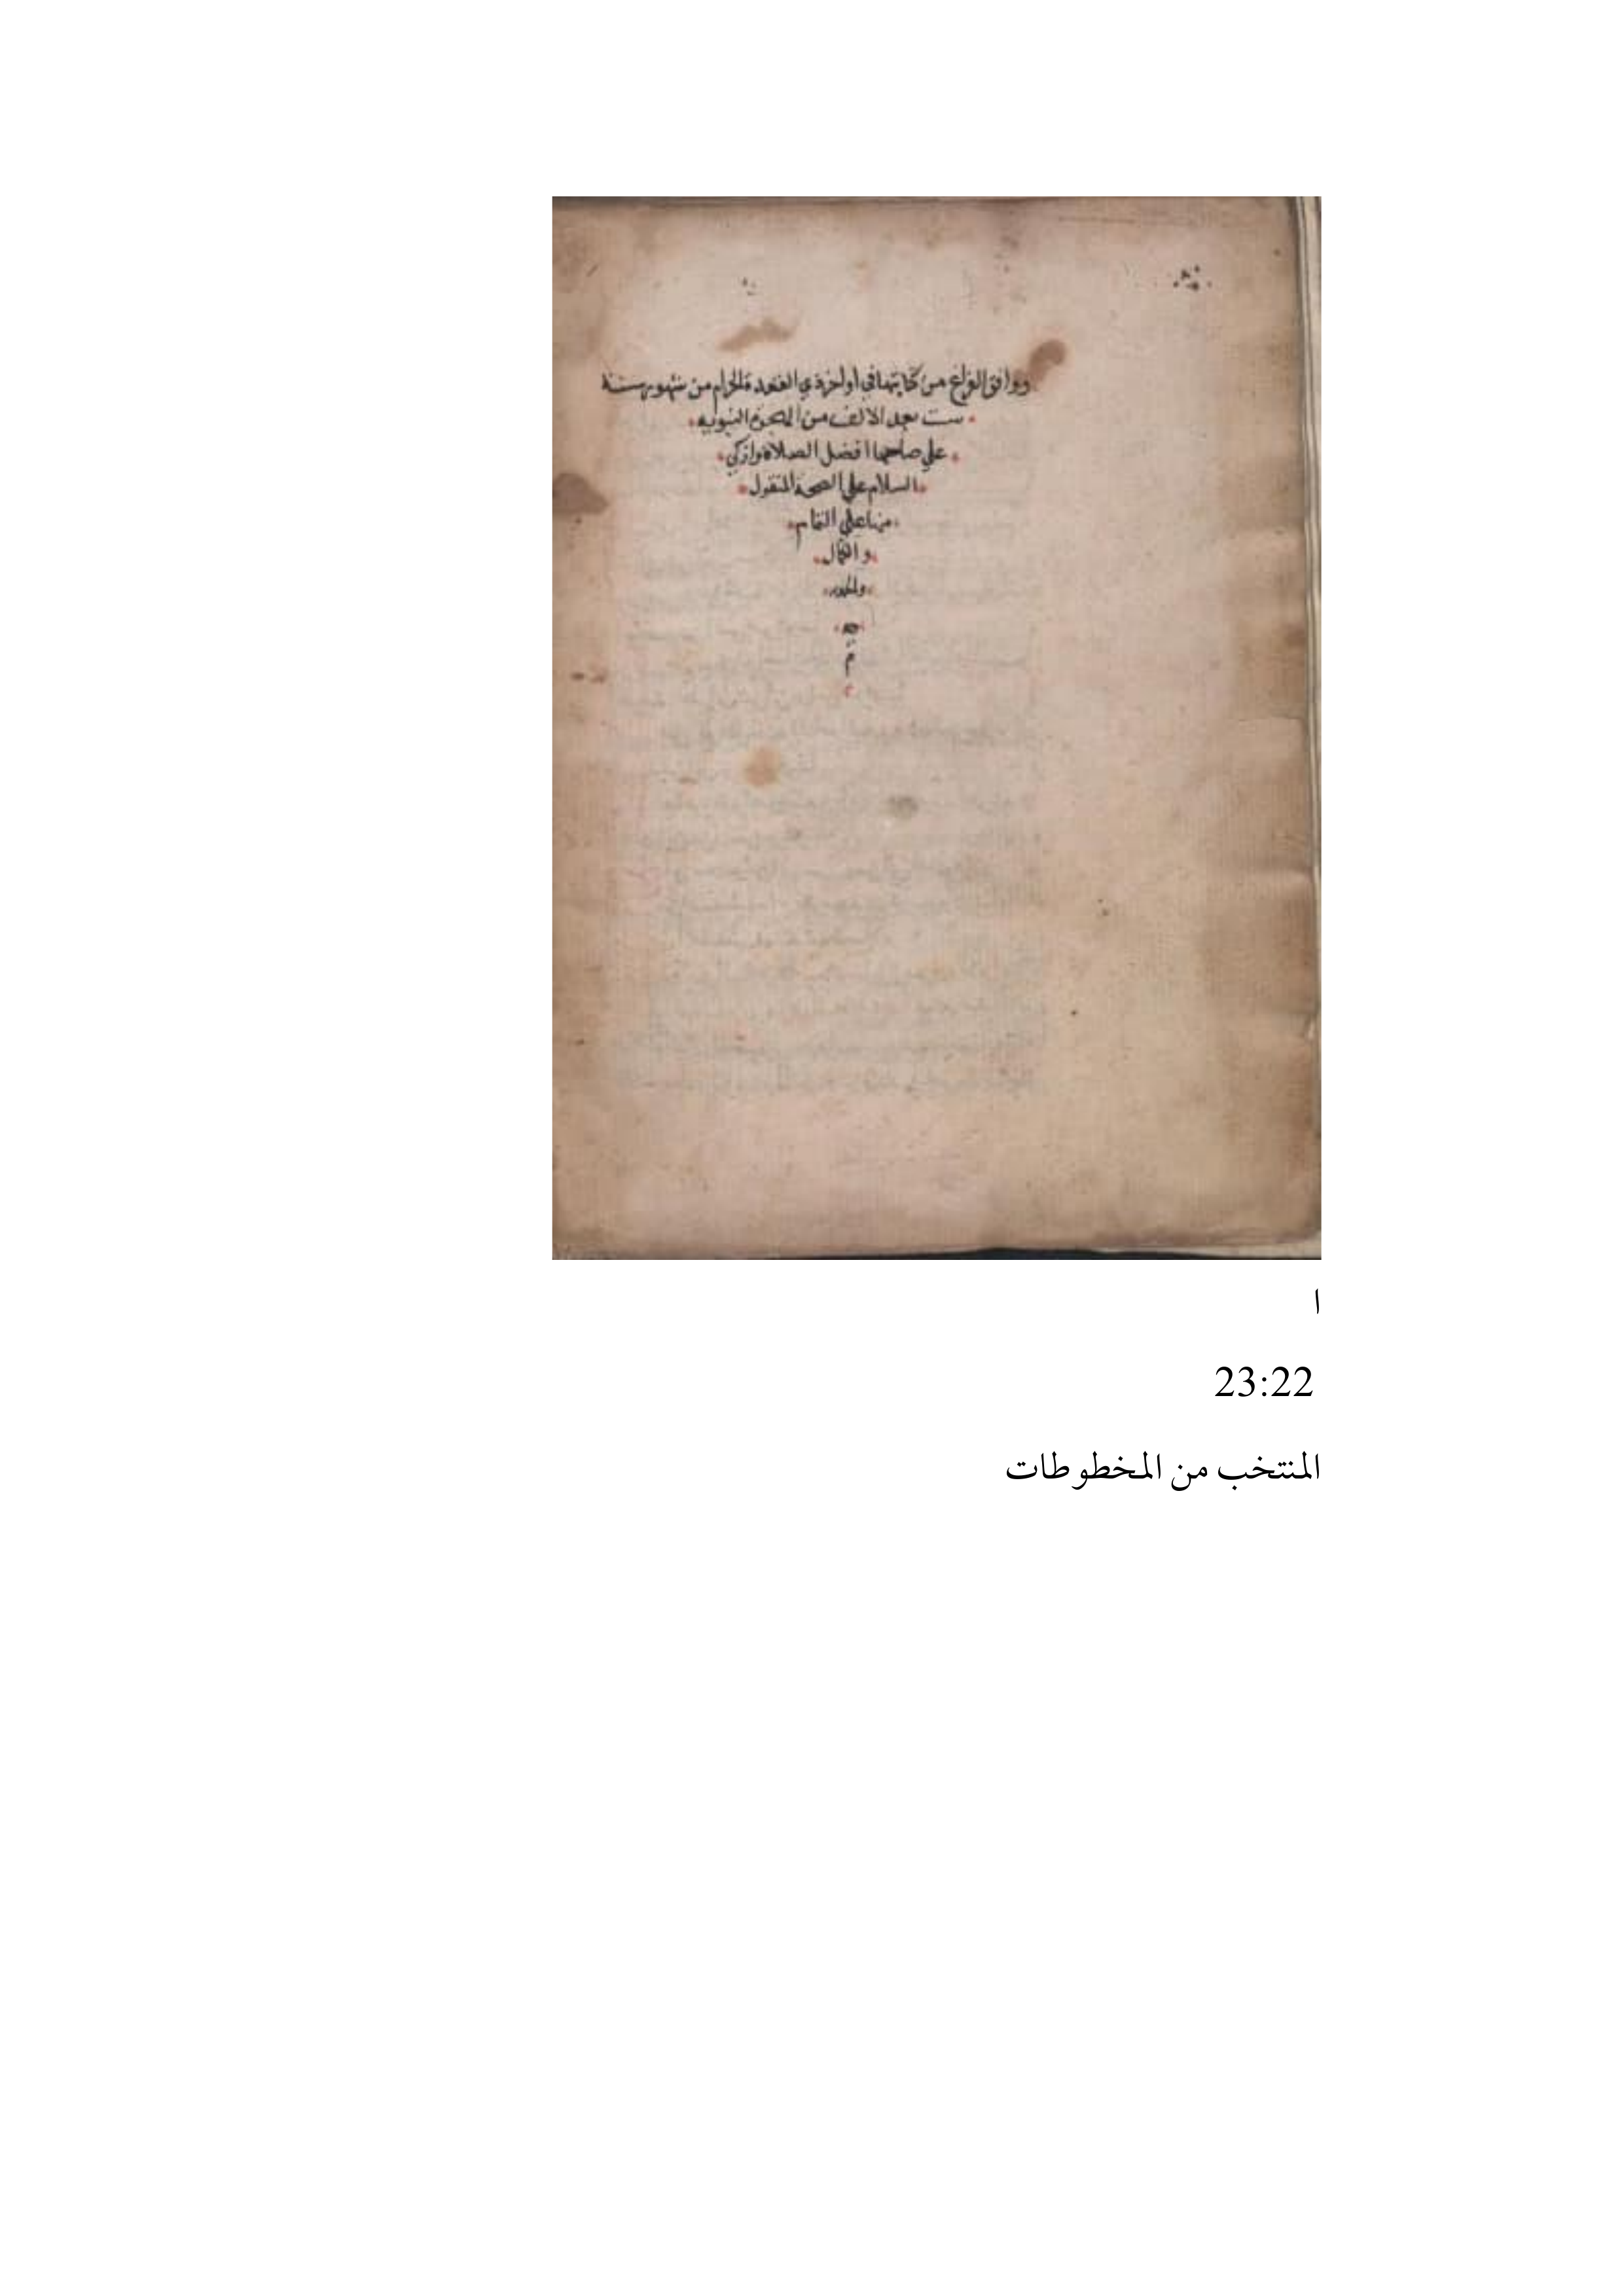 ووافق الفراغ من كتابتها في اواخر ذي القعدة الحرام من شهور سنة
ست بعد الالف من الهجرة النبويه
علي صاحبها افضل الصلاة وازكي
السلام علي الصحة المنقول
منها علي التمام
والكمال
والحمد
لله
م
ا
23:22
المنتخب من المخطوطات